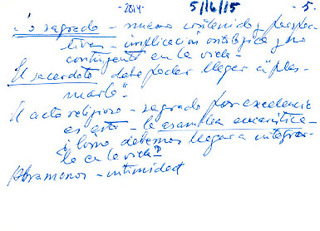 -2014- 5/6/15 -5-
lo sagrado - nuevo contenido y perspec-
tiva - implicación ontológica y no
contingente en la vida -
El sacerdote debe poder llegar a "plas-
marlo"
El acto religioso - sagrado por excelencia
es este - la asamblea eucarística -
¿cómo debemos llegar a integrar-
lo en la vida?
Abramonos - intimidad